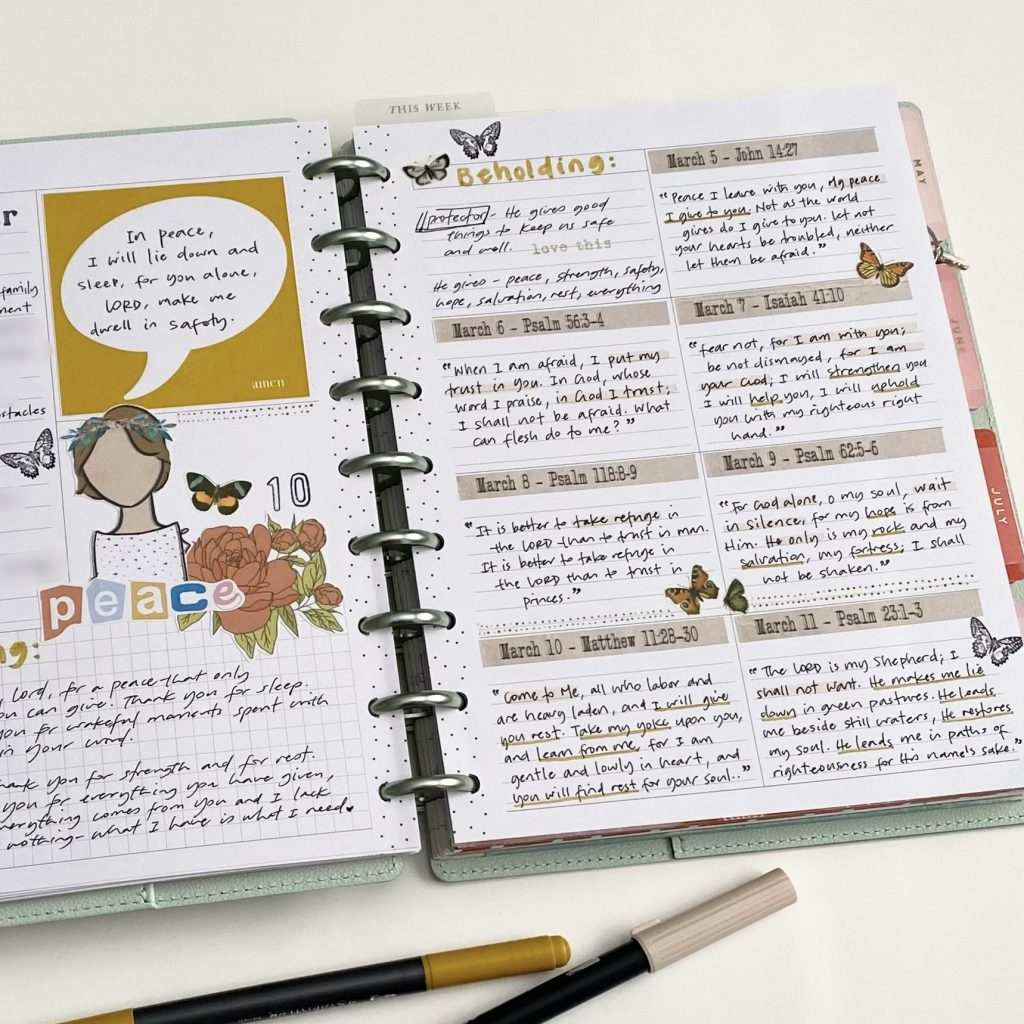 THIS WEEK
r
family
ment
stacles
In peace,
I will lie down and
sleep, for you alone,
LORD, make me
dwell in safety.
amen
10
peace
ng:
Lord, for a peace that only
you can give. Thank you for sleep.
you for wakeful moments spent with
in your word.
hank you for strength and for rest.
you for everything you have given,
everything comes from you and I lack
nothing - what I have is what I need
Beholding:
//protector - He gives good
things to keep us safe
and well. love this
He gives - peace, strength, safety,
hope, salvation, rest, everything
March 5 - John 14:27
"Peace I leave with you, My peace
I give to you. Not as the world
gives do I give to you. Let not
your hearts be troubled, neither
let them be afraid."
March 6 - Psalm 56:3-4
"When I am afraid, I put my
trust in you. In God, whose
word I praise, in God I trust;
I shall not be afraid. What
can flesh do to me?"
March 7 - Isaiah 41:10
"fear not, for I am with you;
be not dismayed, for I am
your God; I will strengthen you
I will help you, I will uphold
you with my righteous right
hand."
March 8 - Psalm 118:8-9
"It is better to take refuge in
the LORD than to trust in man.
It is better to take refuge in
the LORD than to trust in
princes."
March 9 - Psalm 62:5-6
"For God alone, o my soul, wait
in silence, for my hope is from
Him. He only is my rock and my
salvation, my fortress; I shall
not be shaken."
March 10 - Matthew 11:28-30
"Come to Me, all who labor and
are heavy laden, and I will give
you rest. Take my yoke upon you,
and learn from me, for I am
gentle and lowly in heart, and
you will find rest for your soul.."
March 11 - Psalm 23:1-3
"The LORD is my Shepherd; I
shall not want. He makes me lie
down in green pastures. He leads
me beside still waters, He restores
my soul. He leads me in paths of
righteousness for His name's sake."
MAY
JUNE
JULY